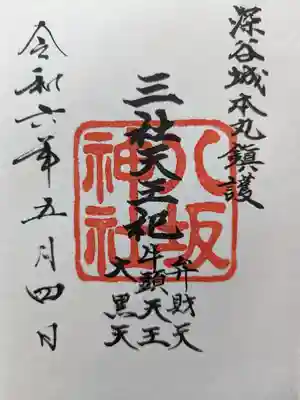 深谷城本丸鎮護
三社天王祀
弁財天
牛頭天王
大黒天
八坂
神社
令和六年五月四日